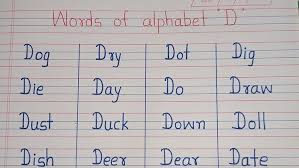 Words of alphabet 'D'
Dog Dry Dot Dig
Die Day Do Draw
Dust Duck Down Doll
Dish Deer Dear Date